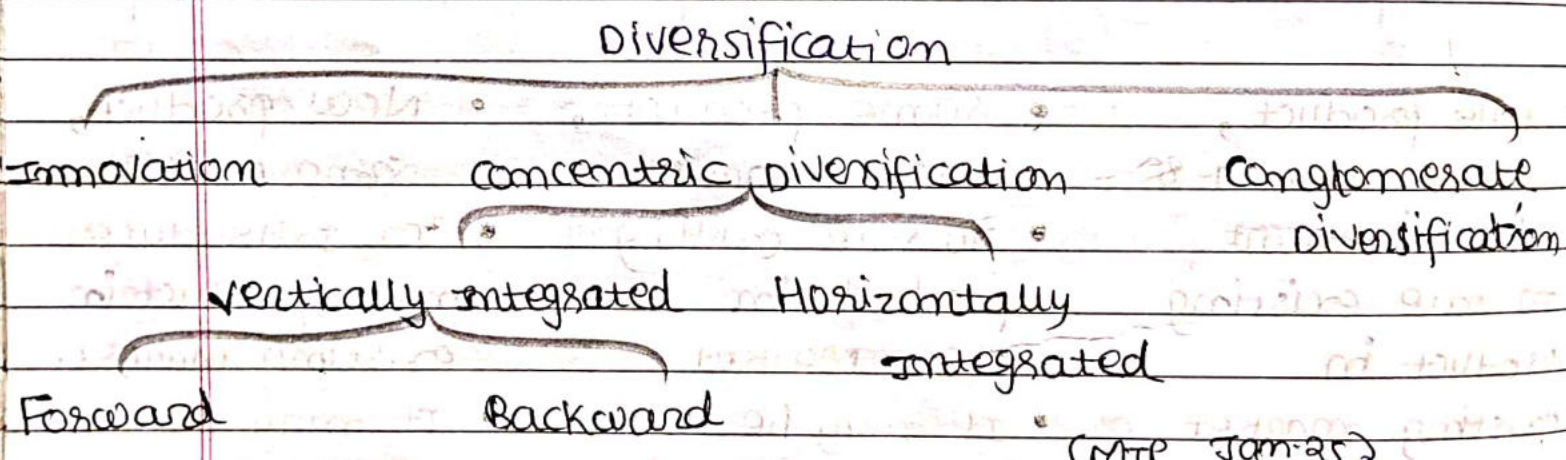 Diversification
Innovation Concentric Diversification Conglomerate
Diversification
Vertically Integrated Horizontally
Integrated
Forward Backward
(MTP Jan-25)